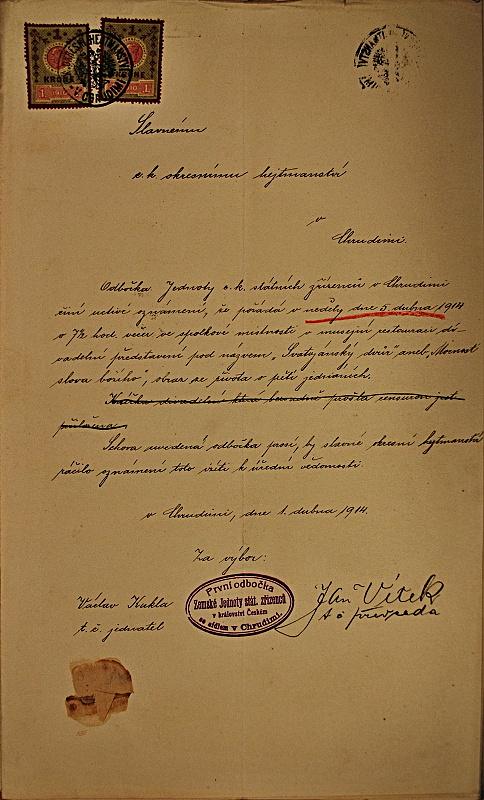 1 1
KRONE
1 1910 1910 1
Slavnému
c. k. okresnímu hejtmanství
v
Chrudimi.
Odbočka Jednoty c. k. státních zřízenců v Chrudimi
činí uctivé oznámení, že pořádá v neděly dne 5. dubna 1914
o 7½ hod. večer ve spolkové místnosti v musejní restauraci di-
vadelní představení pod názvem „Svatojánský dvůr" aneb „Mocnost
slova božího", obraz ze života o pěti jednáních.
Knížka divadelní která prošla censurou jest
přiložena.
Shora uvedená odbočka prosí, by slavné okresní hejtmanství
ráčilo oznámení toto vzíti k úřední vědomosti.
v Chrudimi, dne 1. dubna 1914.
Za výbor:
Václav Kukla
t. č. jednatel
První odbočka
Zemské Jednoty stát. zřízenců
v království Českém
se sídlem v Chrudimi.
Jan Vítek
t č předseda